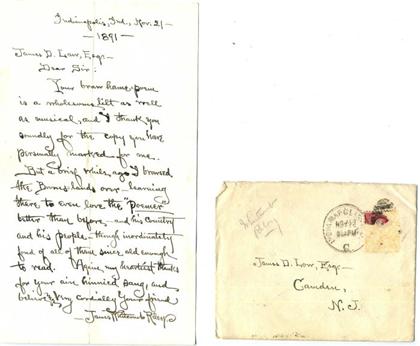 Indianapolis, Ind., Nov. 21 —
— 1891 —
James D. Law, Esq. —
Dear Sir:
Your braw hame-poem
is a wholesome lilt as well
as musical, and I thank you
soundly for the copy you have
personally marked for me.
But a brief while ago I browsed
the Burns lands over — learning
there to even love the Poemer
better than before — and his Country
and his people — though inordinately
fond of all of them since old enough
to read. Again my heartiest thanks
for your ain hinnied sang, and
believe, Very cordially Your friend
— James Whitcomb Riley
Whitcomb
Riley
James D. Law, Esq —
Camden,
N. J.